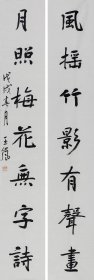 風搖竹影有聲畫
月照梅花無字詩
戊戌春月